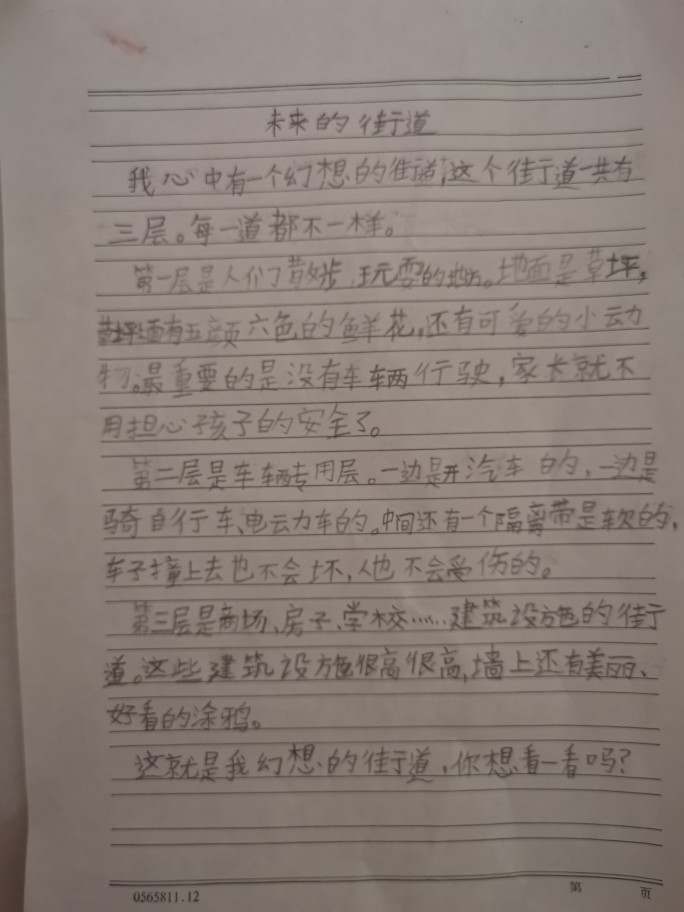 未来的街道
我心中有一个幻想的街道,这个街道一共有
三层。每一道都不一样。
第一层是人们散步,玩耍的地方。地面是草坪,
草坪上面有五颜六色的鲜花,还有可爱的小动
物。最重要的是没有车辆行驶,家长就不
用担心孩子的安全了。
第二层是车辆专用层。一边是开汽车的,一边是
骑自行车、电动车的。中间还有一个隔离带是软的,
车子撞上去也不会坏,人也不会受伤的。
第三层是商场、房子、学校……建筑设施的街
道。这些建筑设施很高很高,墙上还有美丽、
好看的涂鸦。
这就是我幻想的街道,你想看一看吗?
0565811.12
第 页